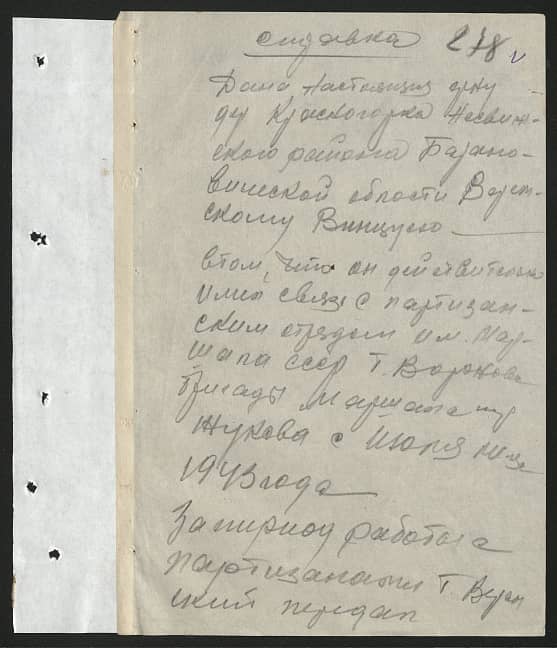 справка 278
Дана настоящия
дер Красногорка Несвиж-
ского района Барано-
вичской области
скому Винцусю
втом, что он действительно
имел связь с партизан-
ским отрядом им. Мар-
шала ссср Т. Воронова
бригады Маршала
Жукова с Июля м-ца
1943 года
За пириод работы с
партизанами Т.
ский передал